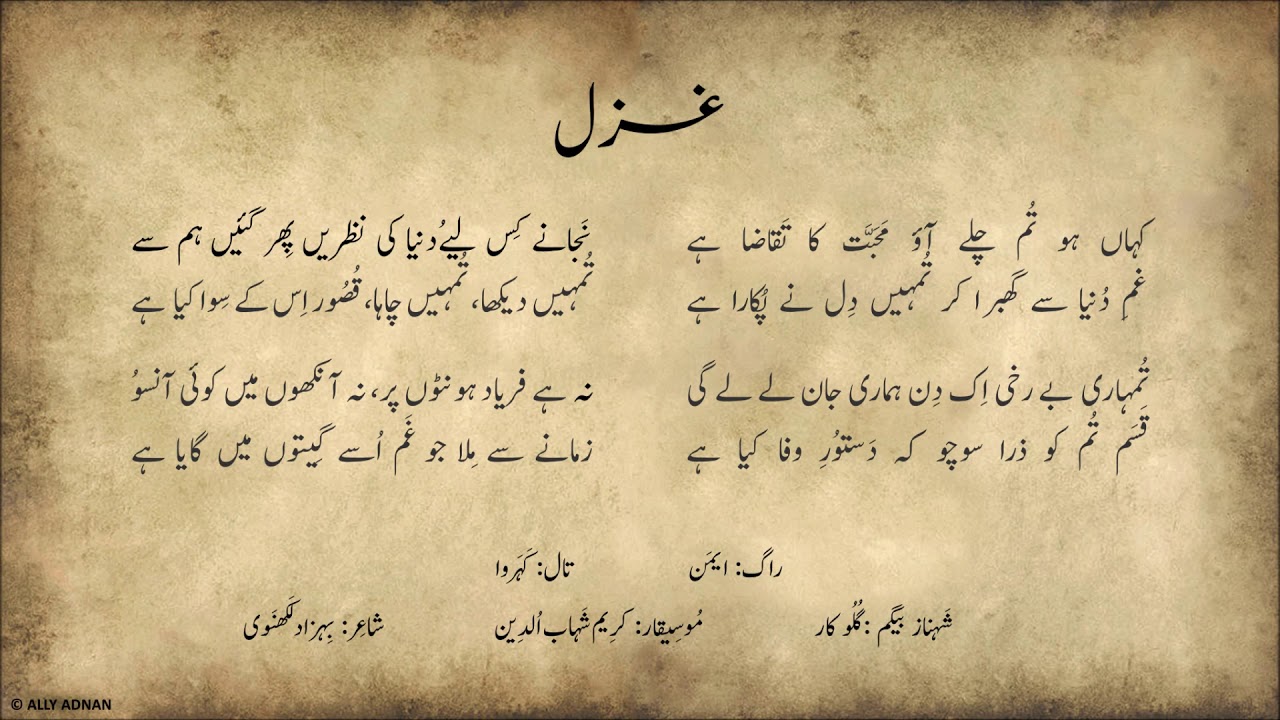 غزل
کہاں ہو تُم چلے آؤ مَحَبَّت کا تَقاضا ہے
غمِ دُنیا سے گھبرا کر تُمہیں دِل نے پُکارا ہے
نَجانے کِس لیے دُنیا کی نظریں پِھر گئیں ہم سے
تُمہیں دیکھا، تُمہیں چاہا، قُصُور اِس کے سِوا کیا ہے
تُمہاری بے رخی اِک دِن ہماری جان لے لے گی
قَسَم تُم کو ذرا سوچو کہ دَستوُرِ وفا کیا ہے
نہ ہے فریاد ہونٹوں پر، نہ آنکھوں میں کوئی آنسوُ
زمانے سے مِلا جو غَم اُسے گیتوں میں گایا ہے
راگ: ایمَن تال: کَہَروا
شَہناز بیگم :گُلُو کار مُوسِیقار: کرِیم شَہاب اُلدِین شاعِر: بِہزاد لَکھنَوی
© ALLY ADNAN